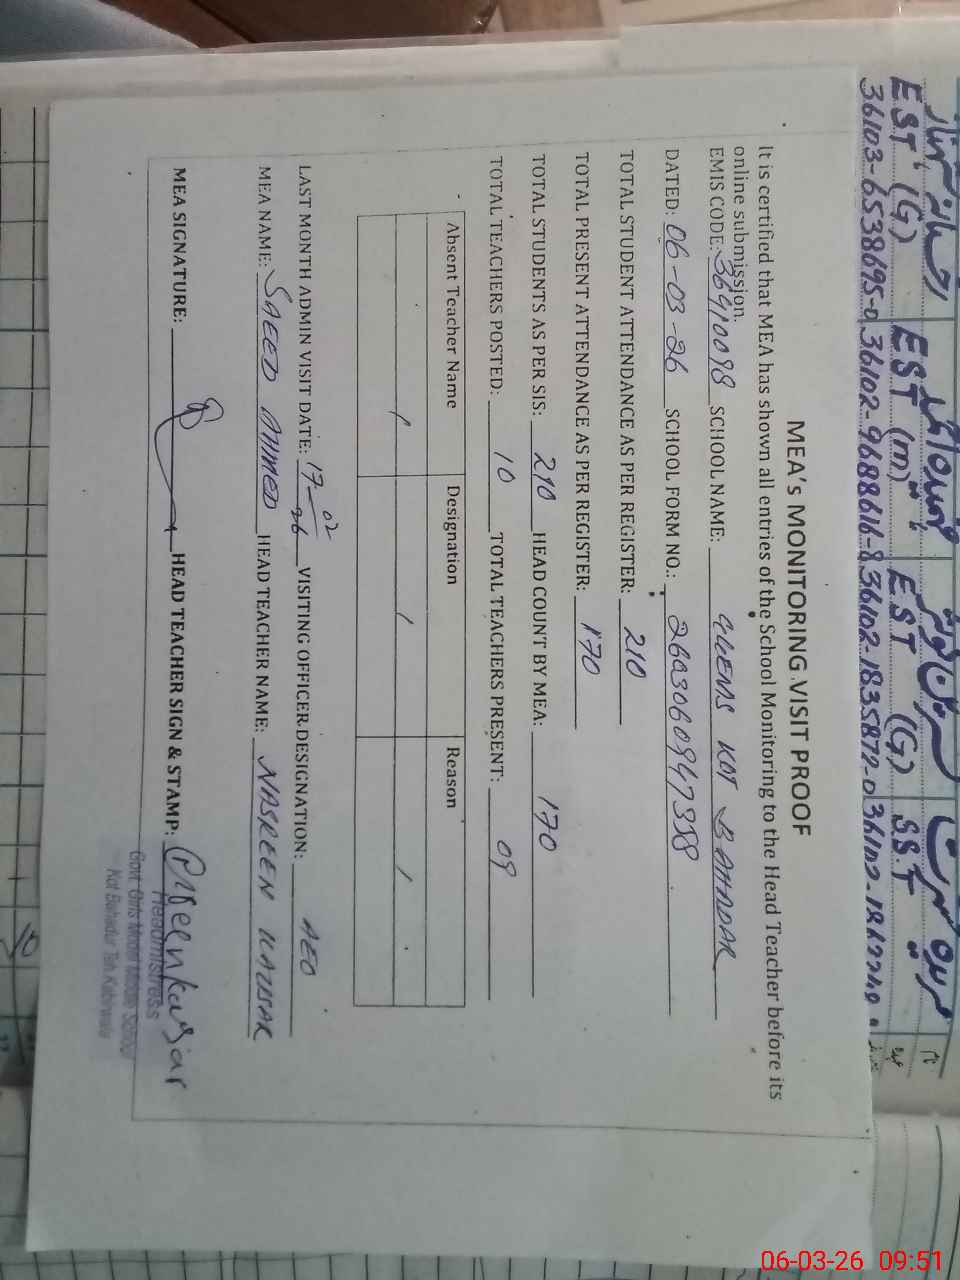 EST (G) EST (m) EST (G) S.S.T
MEA's MONITORING VISIT PROOF
It is certified that MEA has shown all entries of the School Monitoring to the Head Teacher before its
online submission.
EMIS CODE: 36410098 SCHOOL NAME: GGEMS KOT BAHADAR
DATED: 06-03-26 SCHOOL FORM NO.: 2603060947388
TOTAL STUDENT ATTENDANCE AS PER REGISTER: 210
TOTAL PRESENT ATTENDANCE AS PER REGISTER: 170
TOTAL STUDENTS AS PER SIS: 210 HEAD COUNT BY MEA: 170
TOTAL TEACHERS POSTED: 10 TOTAL TEACHERS PRESENT: 09
Absent Teacher Name Designation Reason
LAST MONTH ADMIN VISIT DATE: 17-02-26 VISITING OFFICER DESIGNATION: AEO
MEA NAME: SAEED AHMED HEAD TEACHER NAME: NASREEN KAUSAR
MEA SIGNATURE: HEAD TEACHER SIGN & STAMP:
Headmistress
Govt. Girls Model Middle School
Kot Bahadur Teh Kabirwala
06-03-26 09:51